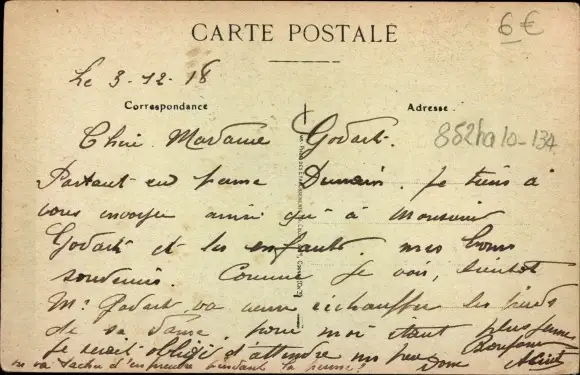 6 €
CARTE POSTALE
Le 3-12-18
Correspondance
Adresse
Chère Madame Godart.
852ha10-134
Partant en perme Demain. Je tiens à
vous envoyer ainsi qu'à Monsieur
Godart et les enfants. mes bons
souvenirs. Comme je vois, bientôt
Mr Godart va venir réchauffer les pieds
de sa Dame. pour moi étant plus jeune
je serait obligé d'attendre un peu
on va tacher d'en prendre pendant la perme!